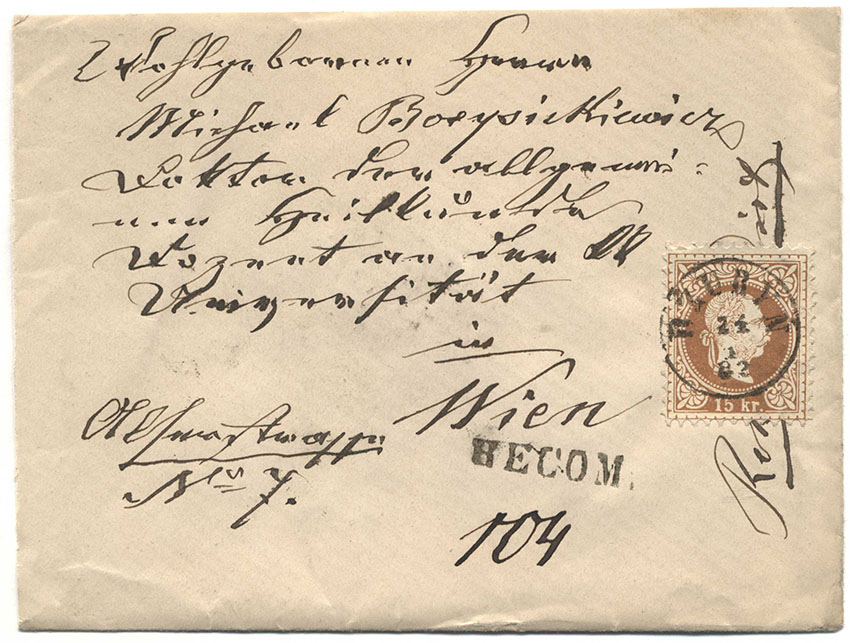 Wohlgebornen Herrn
Michael Borysiekiewicz
Doktor der allgemei-
nen Heilkunde
Dozent an der
Universität
in
Wien
Alserstrasse
Nrs 7.
RECOM.
104
24
1
82
15 kr.